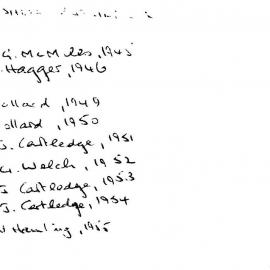 G. McMiles, 1945
Hagger, 1946
ollard, 1949
ollard, 1950
J. Castledge, 1951
G. Welch, 1952
J Castledge, 1953
J. Castledge, 1954
1955